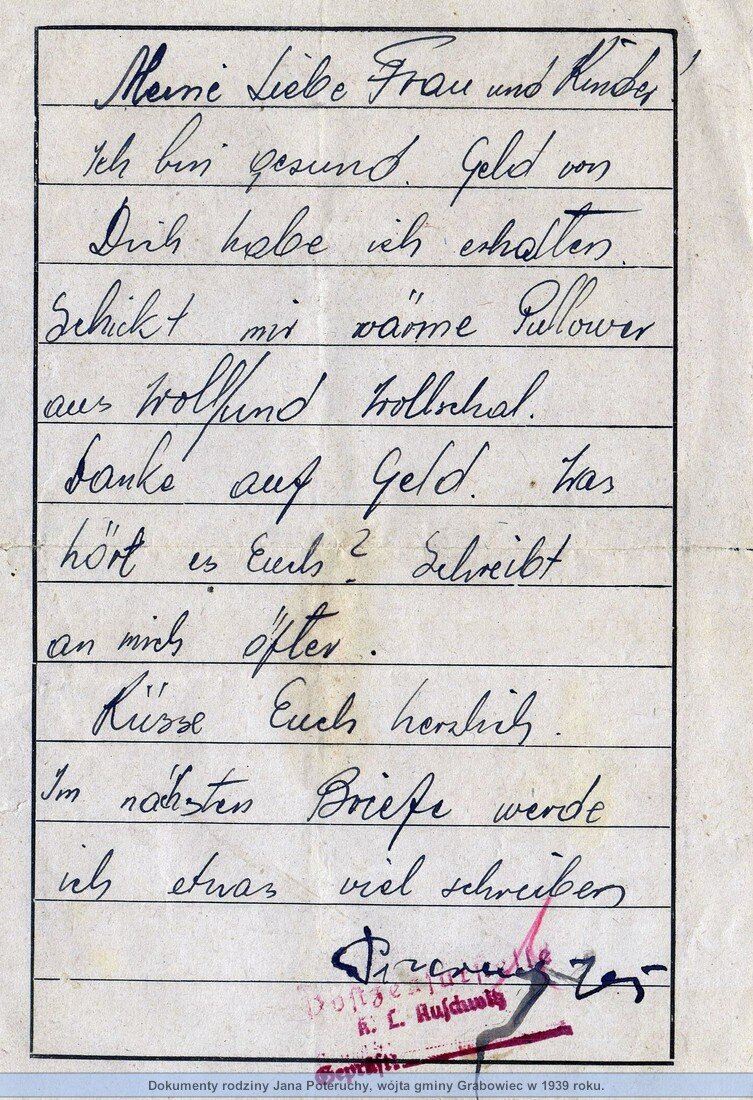 Meine Liebe Frau und Kinder!
Ich bin gesund. Geld von
Dich habe ich erhalten.
Schickt mir wärme Pullower
aus Woll/und Wollschal.
Danke auf Geld. Was
hört es Euch? Schreibt
an mich öfter.
Küsse Euch herzlich.
Im nächsten Briefe werde
ich etwas viel schreiben
Postzensurstelle
K. L. Auschwitz
Geprüft:
Dokumenty rodziny Jana Poteruchy, wójta gminy Grabowiec w 1939 roku.